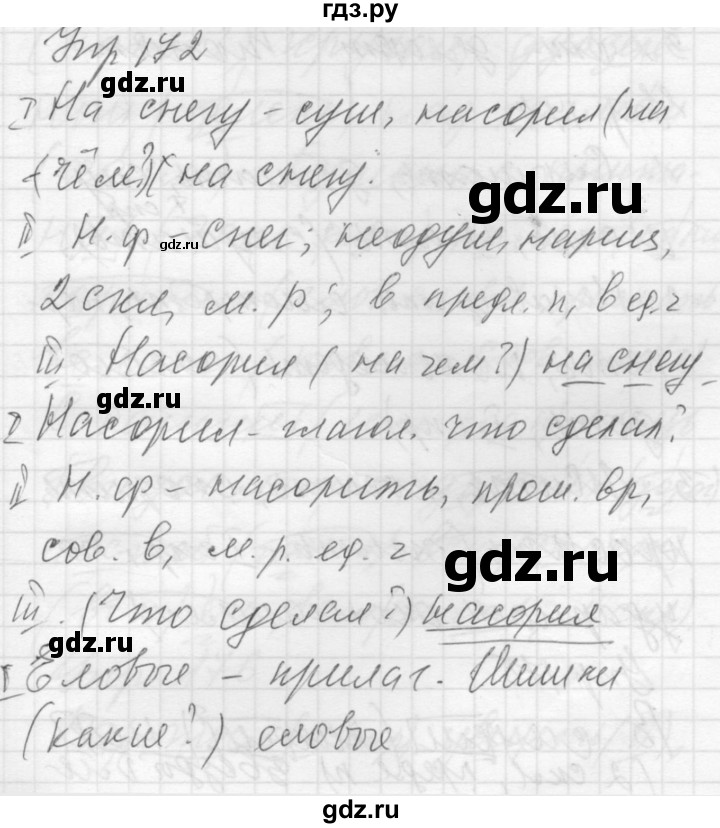 гдз.ру
Упр 172
gdz.ru
I На снегу - сущ, насорил (на
чём?) на снегу.
gdz.ru
gdz.ru
II Н.ф - снег; неодуш, нариц,
gdz.ru
2 скл, м.р; в предл.п, в ед.ч
III Насорил (на чем?) на снегу
gdz.ru
I Насорил - глагол. что сделал?
II Н.ф - насорить, прош. вр,
сов. в, м.р. ед.ч
gdz.ru
III. (Что сделал?) насорил
gdz.ru
I Еловые - прилаг. Шишки
(какие?) еловые
gdz.ru